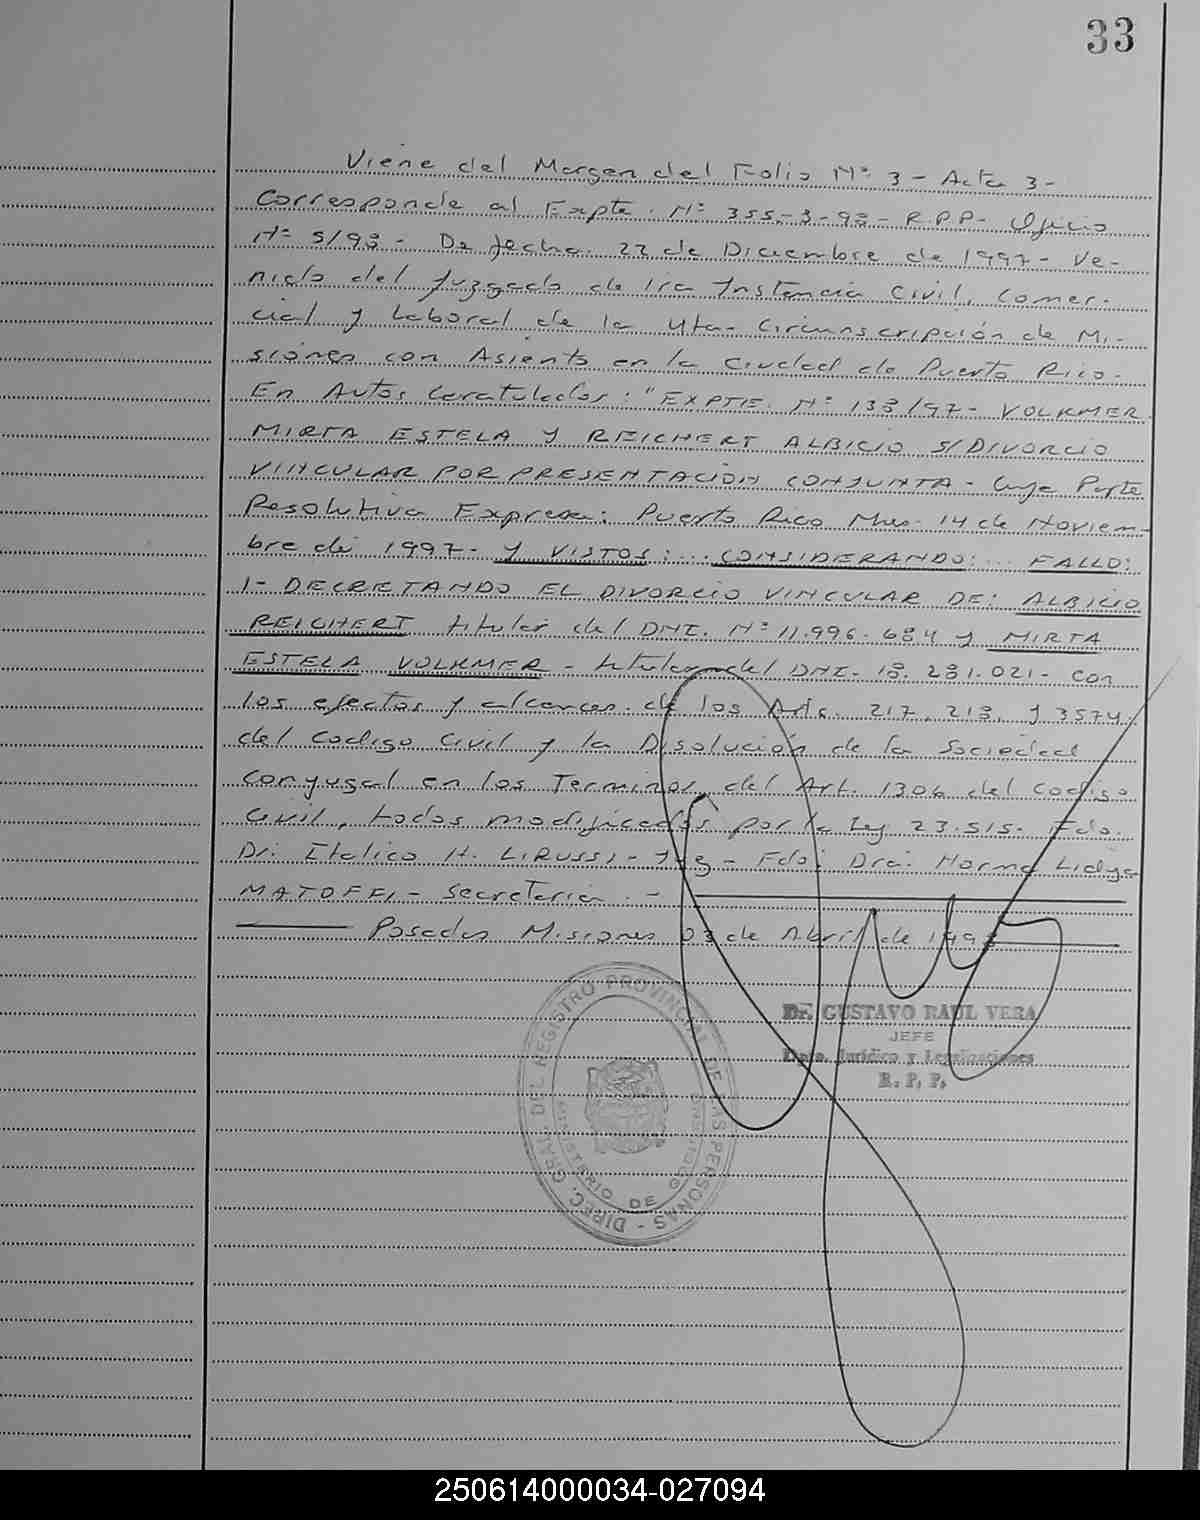 33
Viene del Margen del Folio Nº 3 - Acta 3 -
Corresponde al Expte. Nº 355-3-98 - R.P.P - Oficio
Nº 5/98 - De fecha 22 de Diciembre de 1997 - Ve-
nido del Juzgado de 1ra Instancia Civil, Comer-
cial y Laboral de la 4ta - Circunscripción de Mi-
siones con Asiento en la Ciudad de Puerto Rico -
En Autos Caratulados: "EXPTE. Nº 138/97 - VOLKMER
MIRTA ESTELA Y REICHERT ALBICIO S/DIVORCIO
VINCULAR POR PRESENTACIÓN CONJUNTA - Cuya Parte
Resolutiva Expresa: Puerto Rico Mnes. 14 de Noviem-
bre de 1997 - Y VISTOS: ... CONSIDERANDO: ... FALLO:
1 - DECRETANDO EL DIVORCIO VINCULAR DE: ALBICIO
REICHERT titular del DNI. Nº 11.996.684 y MIRTA
ESTELA VOLKMER - titular del DNI. 18.281.021 - con
los efectos y alcances de los Arts. 217, 218, y 3574
del Codigo Civil y la Disolución de la Sociedad
conyugal en los Terminos del Art. 1306 del Codigo
Civil, todos modificados por la Ley 23.515 - Fdo.
Dr: Italico H. LIRUSSI - Juez - Fdo: Dra: Norma Lidya
MATOFFI - Secretaria. -
Posadas Misiones 03 de Abril de 1998
Dr. GUSTAVO RAUL VERA
JEFE
Dpto. Jurídico y Legalizaciones
R. P. P.
DIREC. GRAL. DEL REGISTRO PROVINCIAL DE LAS PERSONAS -
MINISTERIO DE GOBIERNO
250614000034-027094